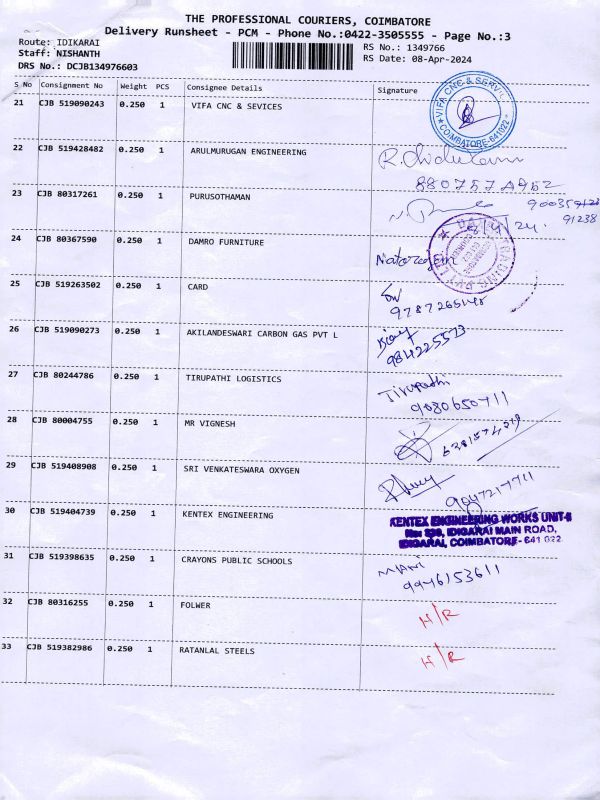 THE PROFESSIONAL COURIERS, COIMBATORE
Delivery Runsheet - PCM - Phone No.:0422-3505555 - Page No.:3
Route: IDIKARAI
RS No.: 1349766
Staff: NISHANTH
RS Date: 08-Apr-2024
DRS No.: DCJB134976603
S No Consignment No Weight PCS Consignee Details Signature
21 CJB 519090243 0.250 1 VIFA CNC & SEVICES
VIFA CNC & SERVI
COIMBATORE-641022
22 CJB 519428482 0.250 1 ARULMURUGAN ENGINEERING
23 CJB 80317261 0.250 1 PURUSOTHAMAN
24 CJB 80367590 0.250 1 DAMRO FURNITURE
25 CJB 519263502 0.250 1 CARD
26 CJB 519090273 0.250 1 AKILANDESWARI CARBON GAS PVT L
984225573
27 CJB 80244786 0.250 1 TIRUPATHI LOGISTICS
Tirupathi
9080650711
28 CJB 80004755 0.250 1 MR VIGNESH
29 CJB 519408908 0.250 1 SRI VENKATESWARA OXYGEN
9047217711
30 CJB 519404739 0.250 1 KENTEX ENGINEERING
KENTEX ENGINEERING WORKS UNIT-II
IDIGARAI MAIN ROAD,
IDIGARAI, COIMBATORE- 641 022.
31 CJB 519398635 0.250 1 CRAYONS PUBLIC SCHOOLS
MANI
9946153611
32 CJB 80316255 0.250 1 FOLWER
N/R
33 CJB 519382986 0.250 1 RATANLAL STEELS
N/R